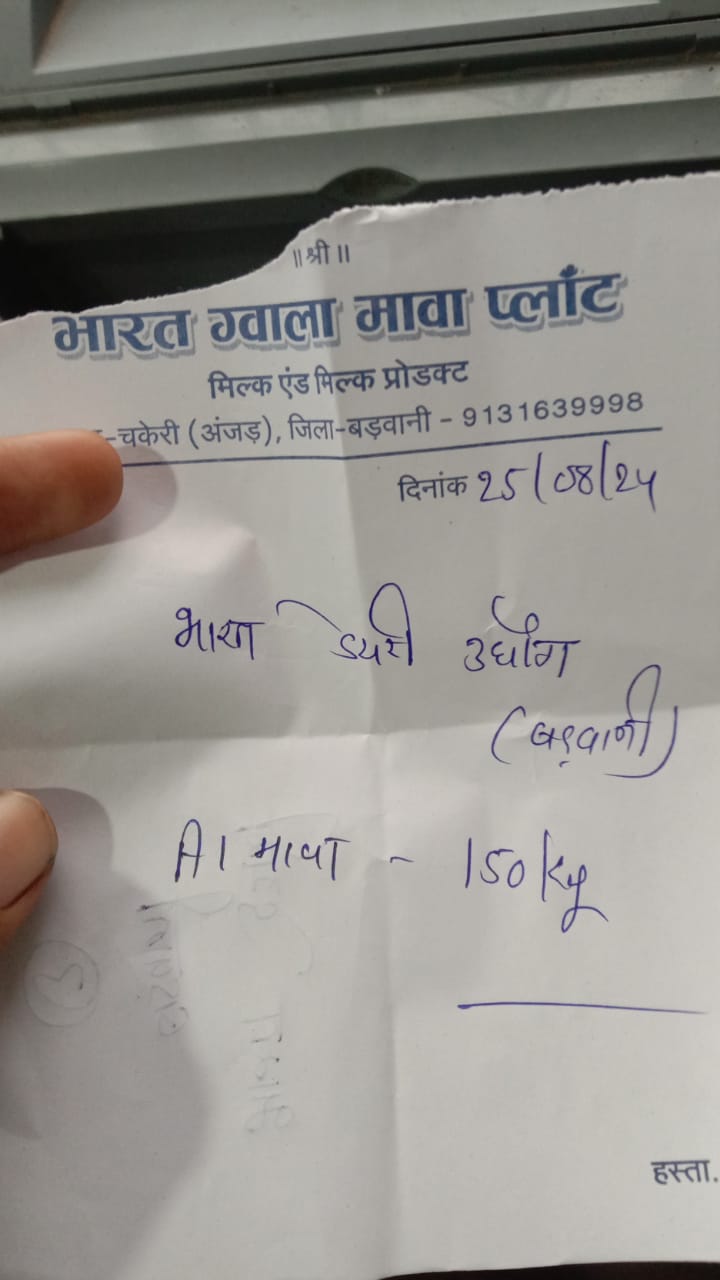 ॥ श्री ॥
भारत ग्वाला मावा प्लाँट
मिल्क एंड मिल्क प्रोडक्ट
-चकेरी (अंजड़), जिला-बड़वानी - 9131639998
दिनांक 25/08/24
भारत डेयरी उद्योग
(बड़वानी)
A1 मावा - 150 kg
हस्ता.